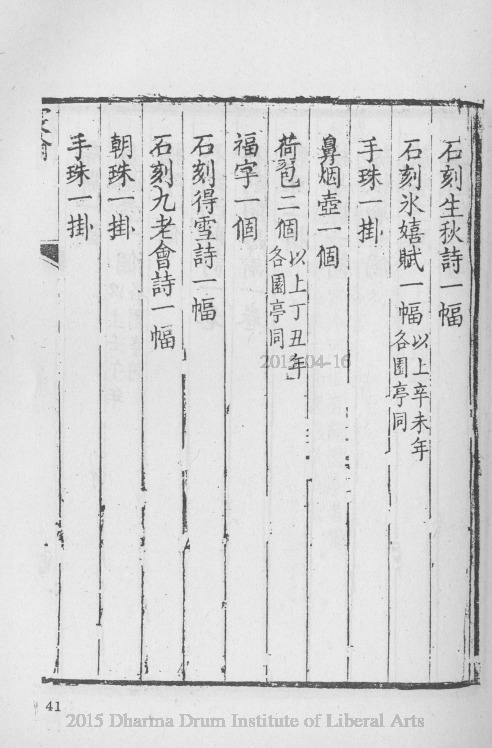 石刻生秋詩一幅
石刻氷嬉賦一幅以上辛未年各園亭同
手珠一掛
鼻烟壺一個
荷包二個以上丁丑年各園亭同
福字一個
石刻得雪詩一幅
石刻九老會詩一幅
朝珠一掛
手珠一掛
41
2015 Dharma Drum Institute of Liberal Arts